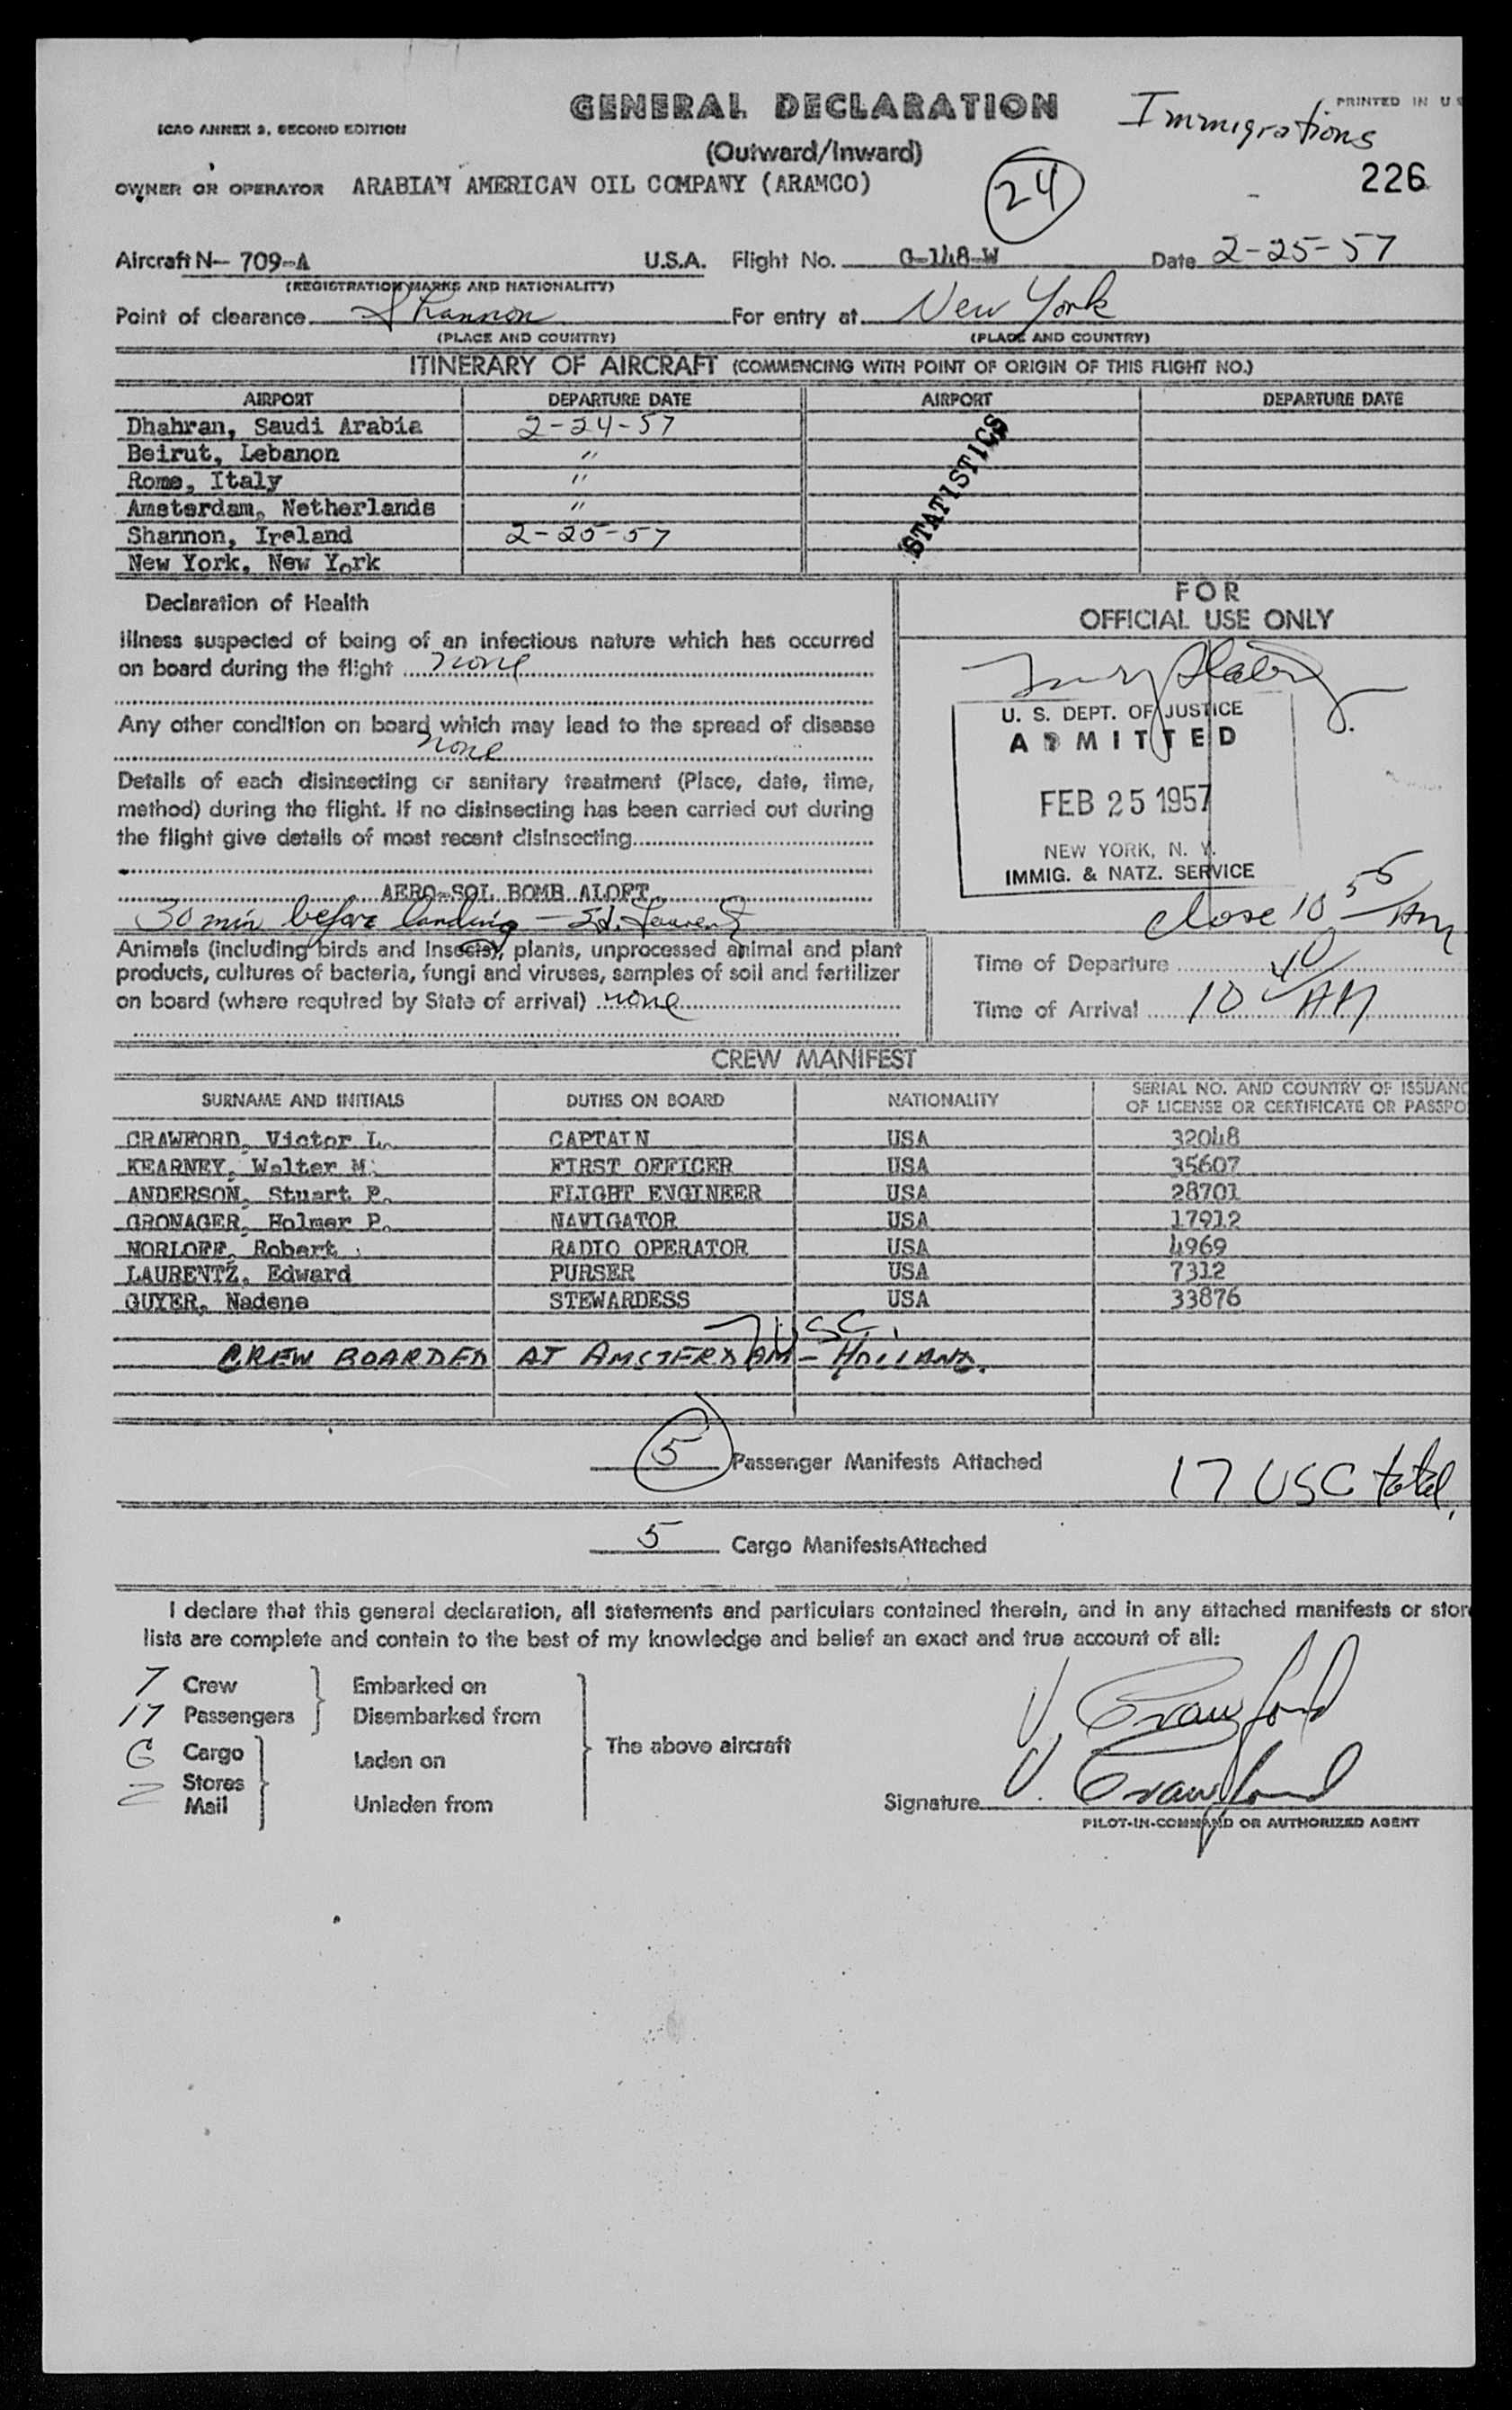 GENERAL DECLARATION
PRINTED IN U
Immigrations
ICAO ANNEX 9, SECOND EDITION
(Outward/Inward)
24
226
OWNER OR OPERATOR ARABIAN AMERICAN OIL COMPANY (ARAMCO)
Aircraft N- 709-A U.S.A. Flight No. G-148-W Date 2-25-57
(REGISTRATION MARKS AND NATIONALITY)
Point of clearance Shannon For entry at New York
(PLACE AND COUNTRY) (PLACE AND COUNTRY)
ITINERARY OF AIRCRAFT (COMMENCING WITH POINT OF ORIGIN OF THIS FLIGHT NO.)
AIRPORT DEPARTURE DATE AIRPORT DEPARTURE DATE
Dhahran, Saudi Arabia 2-24-57
Beirut, Lebanon "
Rome, Italy "
Amsterdam, Netherlands "
Shannon, Ireland 2-25-57
New York, New York
STATISTICS
Declaration of Health
Illness suspected of being of an infectious nature which has occurred
on board during the flight none
Any other condition on board which may lead to the spread of disease
none
Details of each disinsecting or sanitary treatment (Place, date, time,
method) during the flight. If no disinsecting has been carried out during
the flight give details of most recent disinsecting
AERO-SOL BOMB ALOFT
30 min before landing -
Animals (including birds and insects), plants, unprocessed animal and plant
products, cultures of bacteria, fungi and viruses, samples of soil and fertilizer
on board (where required by State of arrival) none
FOR
OFFICIAL USE ONLY
U. S. DEPT. OF JUSTICE
ADMITTED
FEB 25 1957
NEW YORK, N. Y.
IMMIG. & NATZ. SERVICE
close 10 55 AM
Time of Departure
Time of Arrival 10 40 AM
CREW MANIFEST
SURNAME AND INITIALS DUTIES ON BOARD NATIONALITY SERIAL NO. AND COUNTRY OF ISSUANC
OF LICENSE OR CERTIFICATE OR PASSPO
CRAWFORD, Victor L. CAPTAIN USA 32048
KEARNEY, Walter M. FIRST OFFICER USA 35607
ANDERSON, Stuart P. FLIGHT ENGINEER USA 28701
GRONAGER, Holmer P. NAVIGATOR USA 17912
NORLOFF, Robert RADIO OPERATOR USA 4969
LAURENTZ, Edward PURSER USA 7312
GUYER, Nadene STEWARDESS USA 33876
7 USC.
CREW BOARDED AT AMSTERDAM - HOLLAND.
5 Passenger Manifests Attached
17 USC total.
5 Cargo Manifests Attached
I declare that this general declaration, all statements and particulars contained therein, and in any attached manifests or stor
lists are complete and contain to the best of my knowledge and belief an exact and true account of all:
7 Crew Embarked on
17 Passengers Disembarked from
Cargo Laden on
Stores
Mail Unladen from
The above aircraft
V. Crawford
Signature V. Crawford
PILOT-IN-COMMAND OR AUTHORIZED AGENT